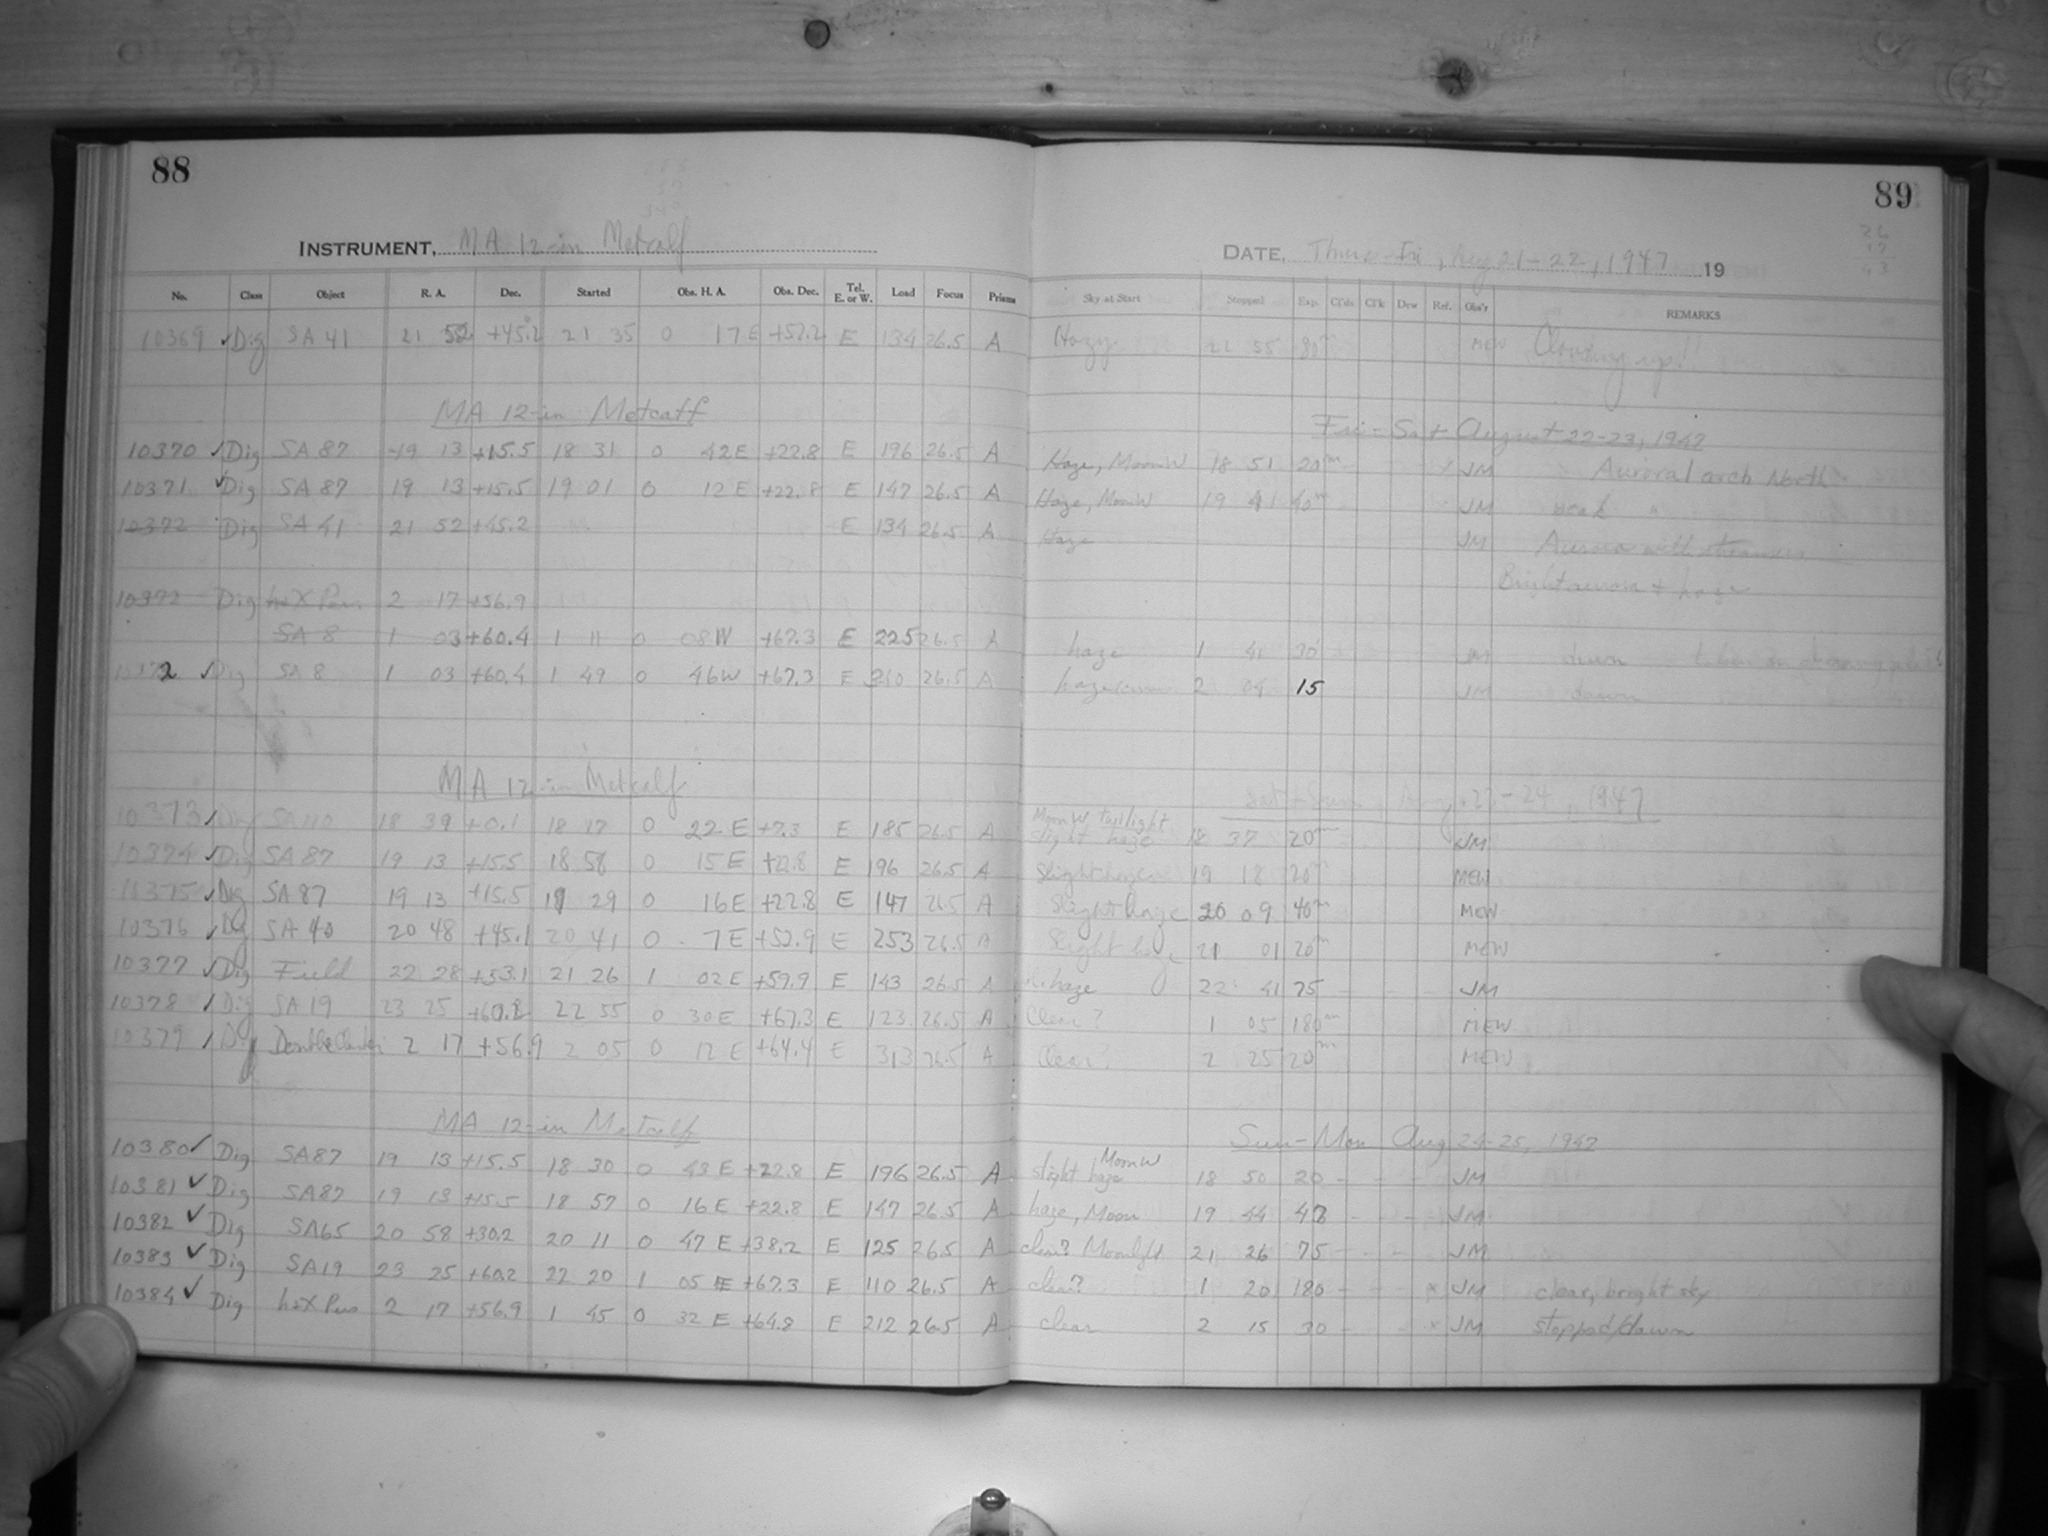 88
89
INSTRUMENT, MA 12-in Metcalf
DATE, Thurs-Fri, Aug 21-22, 1947 19
No. Class Object R. A. Dec. Started Obs. H. A. Obs. Dec. Tel. E. or W. Load Focus Prisms Sky at Start Stopped Exp. Cl'ds Cl'k Dew Ref. Obs'r REMARKS
10369 ✓ Dig SA 41 21 52 +45.2 21 35 0 17 E +52.2 E 134 26.5 A Hazy 22 55 80m MEW Clouding up!!
MA 12-in Metcalf Fri-Sat August 22-23, 1947
10370 ✓ Dig SA 87 19 13 +15.5 18 31 0 42 E +22.8 E 196 26.5 A Haze, Moon W 18 51 20m JM Auroral arch North
10371 ✓ Dig SA 87 19 13 +15.5 19 01 0 12 E +22.8 E 147 26.5 A Haze, Moon W 19 41 40m JM weak "
10372 Dig SA 41 21 52 +45.2 E 134 26.5 A Haze JM Aurora with streamers
10372 Dig h+X Per. 2 17 +56.9 Bright aurora + haze
SA 8 1 03 +60.4 1 11 0 08 W +67.3 E 225 26.5 A haze 1 41 30 JM dawn taken on
10372 ✓ Dig SA 8 1 03 +60.4 1 49 0 46 W +67.3 E 210 26.5 A haze 2 04 15 JM dawn
MA 12-in Metcalf Sat-Sun, Aug. 23-24, 1947
10373 ✓ Dig SA 110 18 39 +0.1 18 17 0 22 E +7.3 E 185 26.5 A Moon W twilight slight haze 18 37 20m JM
10374 ✓ Dig SA 87 19 13 +15.5 18 58 0 15 E +22.8 E 196 26.5 A Slight haze 19 18 20m MEW
10375 ✓ Dig SA 87 19 13 +15.5 19 29 0 16 E +22.8 E 147 26.5 A Slight haze 20 09 40m MEW
10376 ✓ Dig SA 40 20 48 +45.1 20 41 0 7 E +52.9 E 253 26.5 A Slight haze 21 01 20m MEW
10377 ✓ Dig Field 22 28 +53.1 21 26 1 02 E +59.9 E 143 26.5 A haze 22 41 75 JM
10378 ✓ Dig SA 19 23 25 +60.2 22 55 0 30 E +67.3 E 123 26.5 A Clear? 1 05 180m MEW
10379 ✓ Dig Double Cluster 2 17 +56.9 2 05 0 12 E +64.4 E 313 26.5 A Clear? 2 25 20m MEW
MA 12-in Metcalf Sun-Mon Aug 24-25, 1947
10380 ✓ Dig SA 87 19 13 +15.5 18 30 0 43 E +22.8 E 196 26.5 A slight haze Moon W 18 50 20 JM
10381 ✓ Dig SA 87 19 13 +15.5 18 57 0 16 E +22.8 E 147 26.5 A haze, Moon 19 44 47 JM
10382 ✓ Dig SA 65 20 58 +30.2 20 11 0 47 E +38.2 E 125 26.5 A clear? Moonlight 21 26 75 JM
10383 ✓ Dig SA 19 23 25 +60.2 22 20 1 05 E +67.3 E 110 26.5 A clear? 1 20 180 x JM clear, bright sky
10384 ✓ Dig h+X Per 2 17 +56.9 1 45 0 32 E +64.8 E 212 26.5 A clear 2 15 30 x JM stopped, dawn